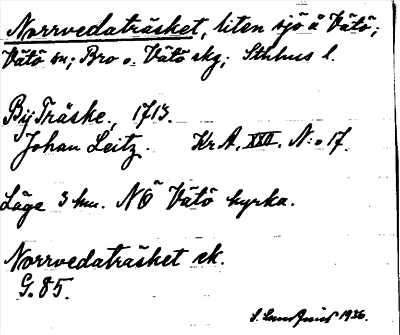 Norrvedaträsket, liten sjö å Vätö;
Vätö sn; Bro o. Vätö skg; Sthlms l.
By Träske, 1713.
Johan Leitz. Kr A. XXII. N:o 17.
Läge 3 km. NÖ Vätö kyrka.
Norrvedaträsket ek.
G. 85.
S. Lundquist 1936.